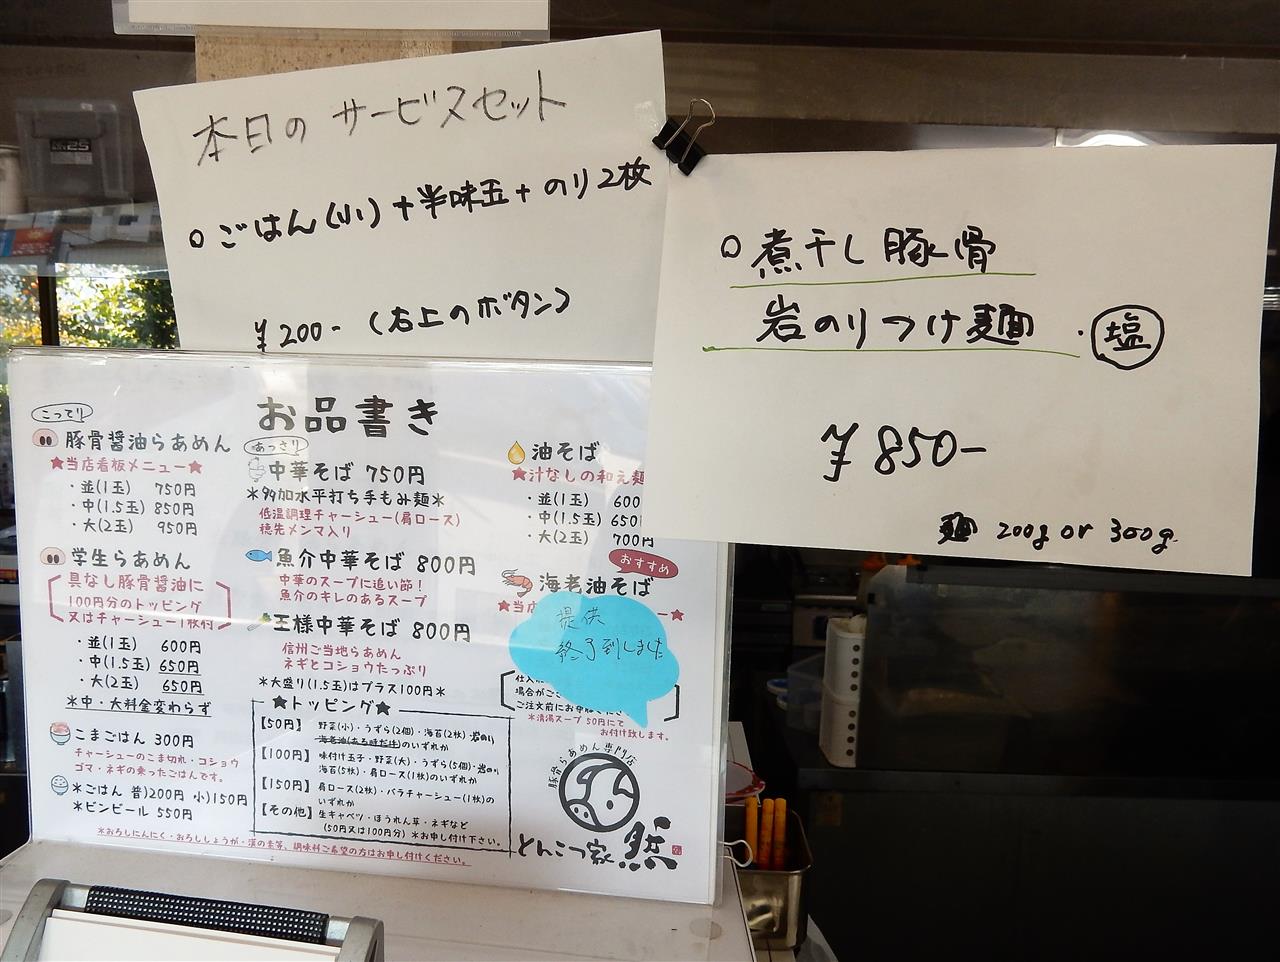 本日の サービスセット
○ ごはん(小) + 半味玉 + のり2枚
¥200- (右上のボタン)
○ 煮干し豚骨
岩のりつけ麺 ・ 塩
¥850-
麺 200g or 300g
お品書き
こってり
豚骨醤油らあめん
★当店看板メニュー★
・並(1玉) 750円
・中(1.5玉) 850円
・大(2玉) 950円
学生らあめん
具なし豚骨醤油に
100円分のトッピング
又はチャーシュー1枚付
・並(1玉) 600円
・中(1.5玉) 650円
・大(2玉) 650円
*中・大料金変わらず
こまごはん 300円
チャーシューのこま切れ・コショウ
ゴマ・ネギの乗ったごはんです。
*ごはん 普)200円 小)150円
*ビンビール 550円
あっさり
中華そば 750円
*多加水平打ち手もみ麺*
低温調理チャーシュー(肩ロース)
穂先メンマ入り
魚介中華そば 800円
中華のスープに追い節！
魚介のキレのあるスープ
王様中華そば 800円
信州ご当地らあめん
ネギとコショウたっぷり
*大盛り(1.5玉)はプラス100円*
油そば
★汁なしの和え麺
・並(1玉) 600
・中(1.5玉) 650
・大(2玉) 700円
おすすめ
海老油そば
★当店
★
提供
終了致しました
場合がご
ご注文前にお
*清湯スープ 50円にて
お付け致します。
★トッピング★
【50円】 野菜(小)・うずら(2個)・海苔(2枚) 岩のり
海老油(ある時だけ)のいずれか
【100円】 味付け玉子・野菜(大)・うずら(5個)・岩のり
海苔(5枚)・肩ロース(1枚)のいずれか
【150円】 肩ロース(2枚)・バラチャーシュー(1枚)の
いずれか
【その他】 生キャベツ・ほうれん草・ネギなど
(50円又は100円分) *お申し付け下さい。
*おろしにんにく・おろししょうが・酒の素等、調味料ご希望の方はお申し付けください。
豚骨らあめん専門店
とんこつ家 熊